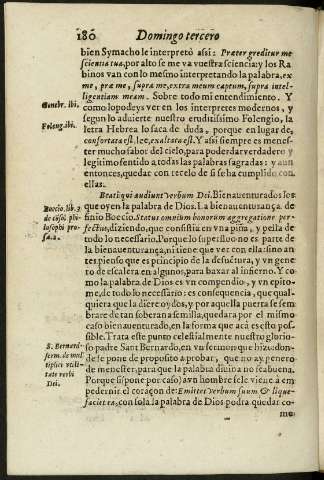 180 Domingo tercero
bien Symacho le interpretò assi: Præter greditur me
scientia tua, por alto se me va vuestra sciencia: y los Ra
binos van con lo mesmo interpretando la palabra, ex
me, præ me, supra me, extra meum captum, supra intel-
ligentiam meam. Sobre todo mi entendimiento. Y
como lo podeys ver en los interpretes modernos, y
segun lo aduierte nuestro eruditissimo Folengio, la
letra Hebrea lo saca de duda, porque en lugar de,
confortata est, lee, exaltata est. Y assi siempre es menes-
ter mucho sabor del cielo, para poder dar verdadero y
legitimo sentido a todas las palabras sagradas: y aun
entonces, quedar con recelo de si se ha cumplido con
ellas.
Genebr. ibi.
Foleng. ibi.
Beati qui audiunt verbum Dei. Bienauenturados los
que oyen la palabra de Dios. La bienauenturança, de
finio Boecio. Status omnium bonorum aggregatione per-
fectus, diziendo, que consistia en vna piña, y pella de
todo lo necessario. Porque lo superfluo no es parte de
la bienauenturança, ni tiene que ver con ella: sino an
tes pienso que es principio de la desuẽtura, y vn gene
to de escalera en algunos, para baxar al infierno. Y co
mo la palabra de Dios es vn compendio, y vn epito-
me, de todo lo necessario: es consequencia, que qual
quiera que la diere oydos, y por aquella puerta se sem
brare de tan soberana semilla, quedara por el mismo
caso bienauenturado, en la forma que acà es esto pos
sible. Trata este punto celestialmente nuestro glorio-
so padre Sant Bernardo, en vn sermon que hizo, don-
de se pone de proposito a probar, que no ay genero
de menester, para que la palabra diuina no sea buena.
Porque si (pone por caso) a vn hombre se le viene a em
pedernir el coraçon: de: Emittet verbum suum & lique-
faciet ea, con sola la palabra de Dios podra quedar co-
mo
Boecio. lib. 3
de cõsol. phi
losophi pro
sa. 2.
S. Bernard.
serm. de mul
tiplici vtili
tate verbi
Dei.